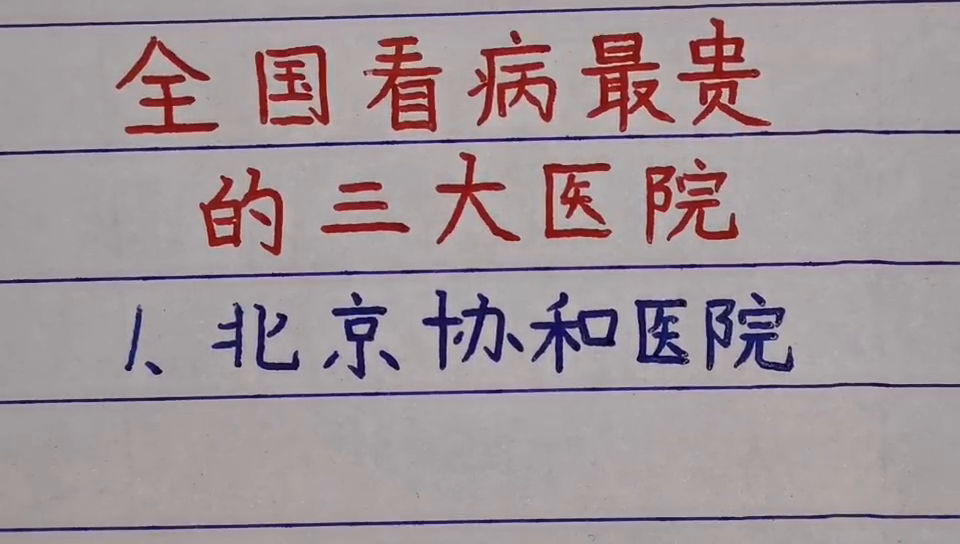 全国看病最贵
的三大医院
1、北京协和医院